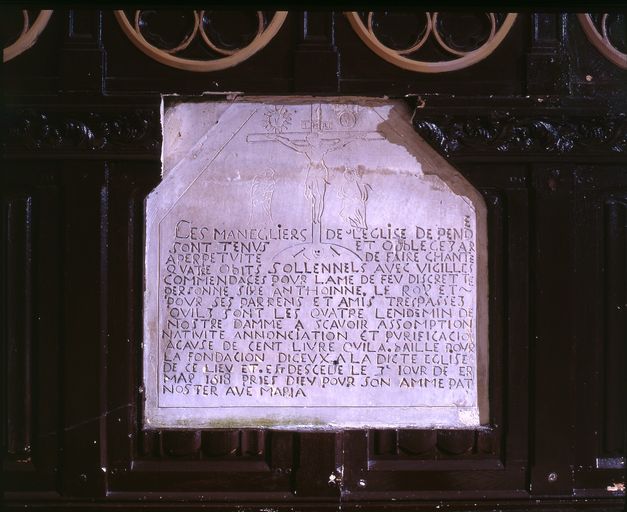 INRI
CES MANEGLIERS DE LEGLISE DE PEND
SONT TENVS ET OVBLEGEZ AR
APERPETVITE DE FAIRE CHANTE
QVATRE OBITS SOLLENNELS AVEC VIGILLES
COMMENDACES POVR LAME DE FEV DISCRETTE
PERSONNE SIRE ANTHOINNE LE ROY ET
POVR SES PARRENS ET AMIS TRESPASSEZ
QVILZ SONT LES QVATRE LENDEMIN DE
NOSTRE DAMME A SCAVOIR ASSOMPTION
NATIVITE ANNONCIATION ET PVRIFICACIO
ACAVSE DE CENT LIVRE QVILA BAILLE POVR
LA FONDACION DICEVX A LA DICTE EGLISE
DE CE LIEV ET EST DESCEDE LE 3E IOVR DE
MAR 1618 PRIES DIEV POVR SON AMME PAT
NOSTER AVE MARIA